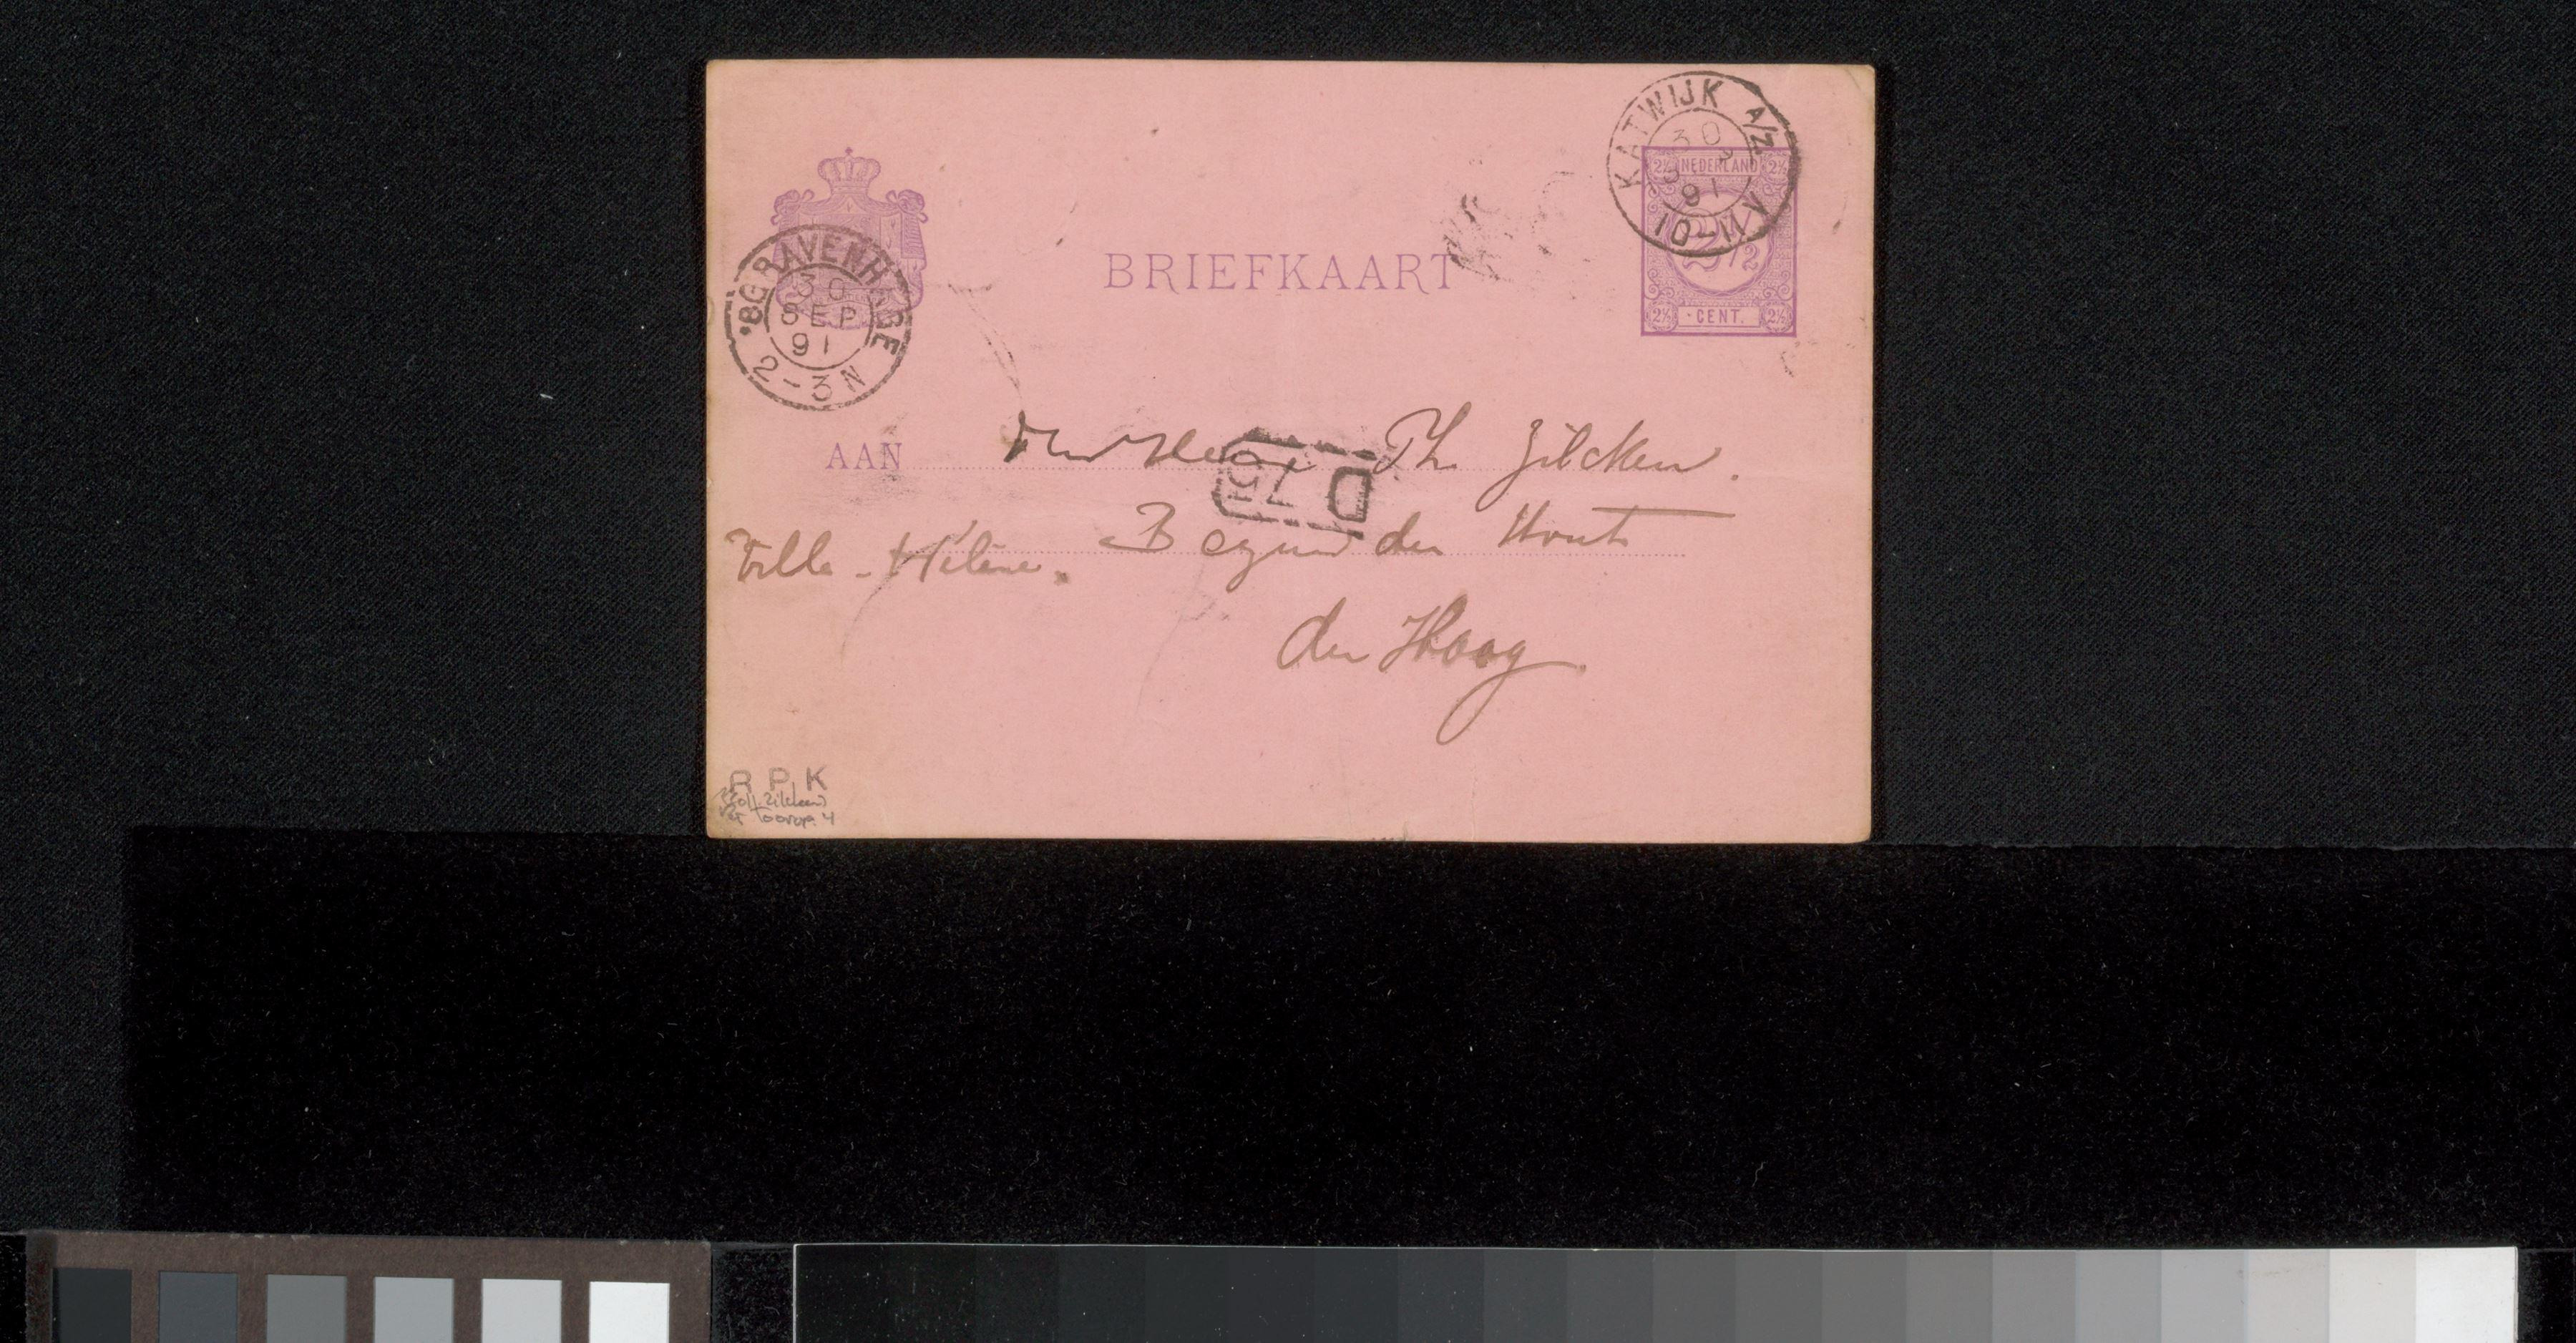 KATWIJK A/Z
30
91
10-11V
2½ NEDERLAND 2½
2½
2½ CENT. 2½
'SGRAVENHAGE
30
SEP
91
2-3N
BRIEFKAART
AAN den Heer Ph. Zilcken.
D 75
Villa-Hélène. Bezuidenhout
den Haag
R P K
(Coll. Zilcken)
Toorop. 4